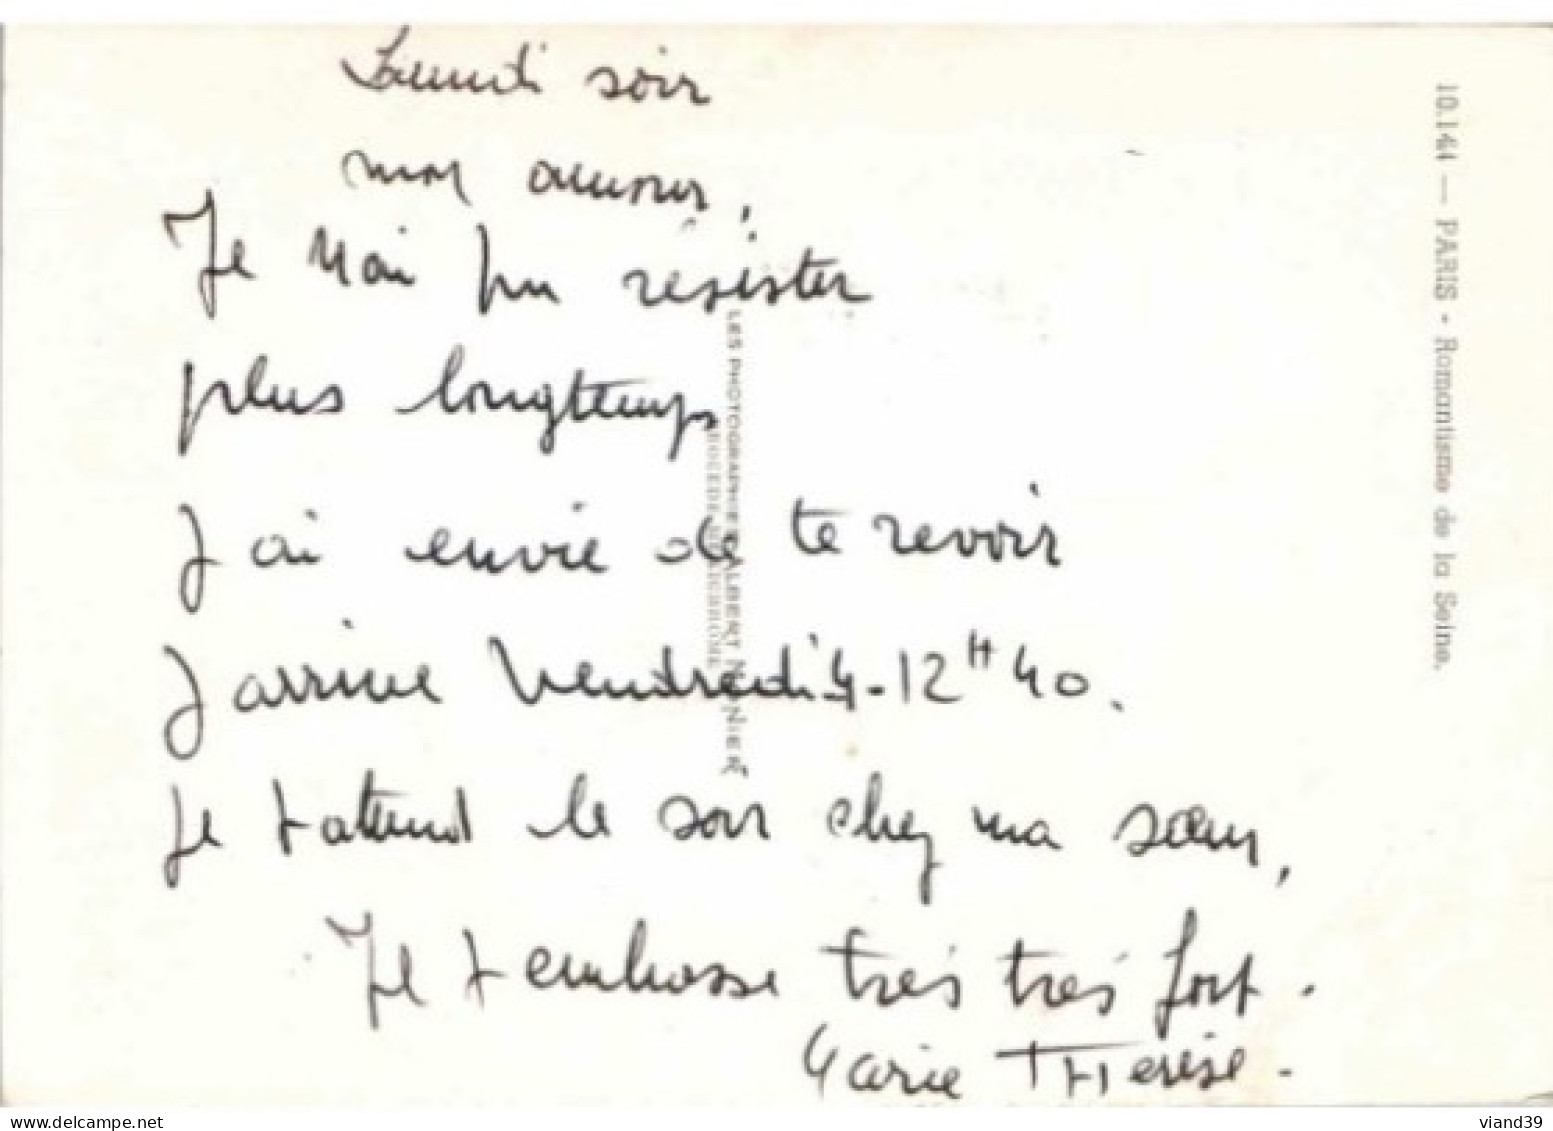 Lundi soir
mon amour,
Je n'ai pu résister
plus longtemps
J'ai envie de te revoir
J'arrive Vendredi 4 - 12H40.
Je t'attend le soir chez ma sœur,
Je t'embrasse très très fort.
Marie THerèse.
10.144 — PARIS - Romantisme de la Seine.
LES PHOTOGRAPHIES ALBERT MONIER
viand39